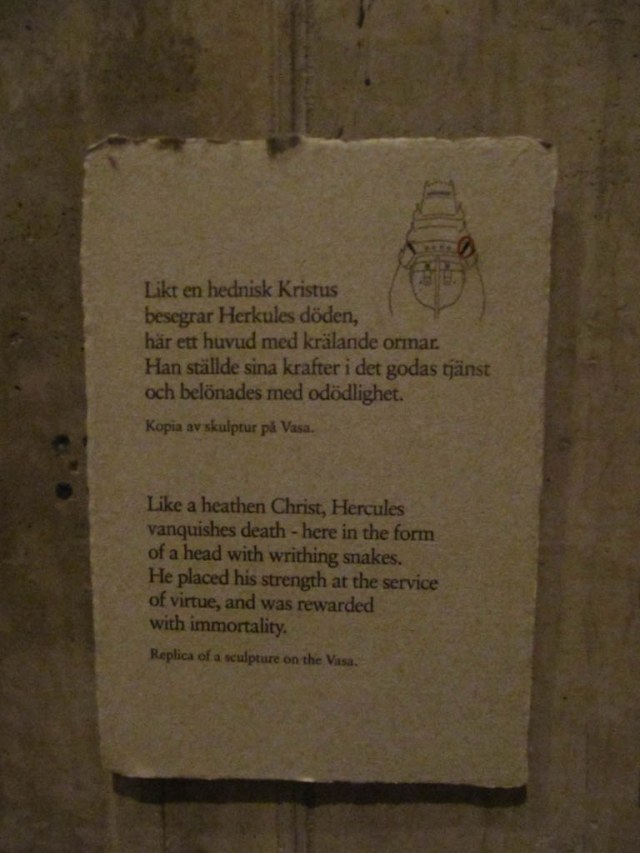 Likt en hednisk Kristus
besegrar Herkules döden,
här ett huvud med krälande ormar.
Han ställde sina krafter i det godas tjänst
och belönades med odödlighet.
Kopia av skulptur på Vasa.
Like a heathen Christ, Hercules
vanquishes death - here in the form
of a head with writhing snakes.
He placed his strength at the service
of virtue, and was rewarded
with immortality.
Replica of a sculpture on the Vasa.